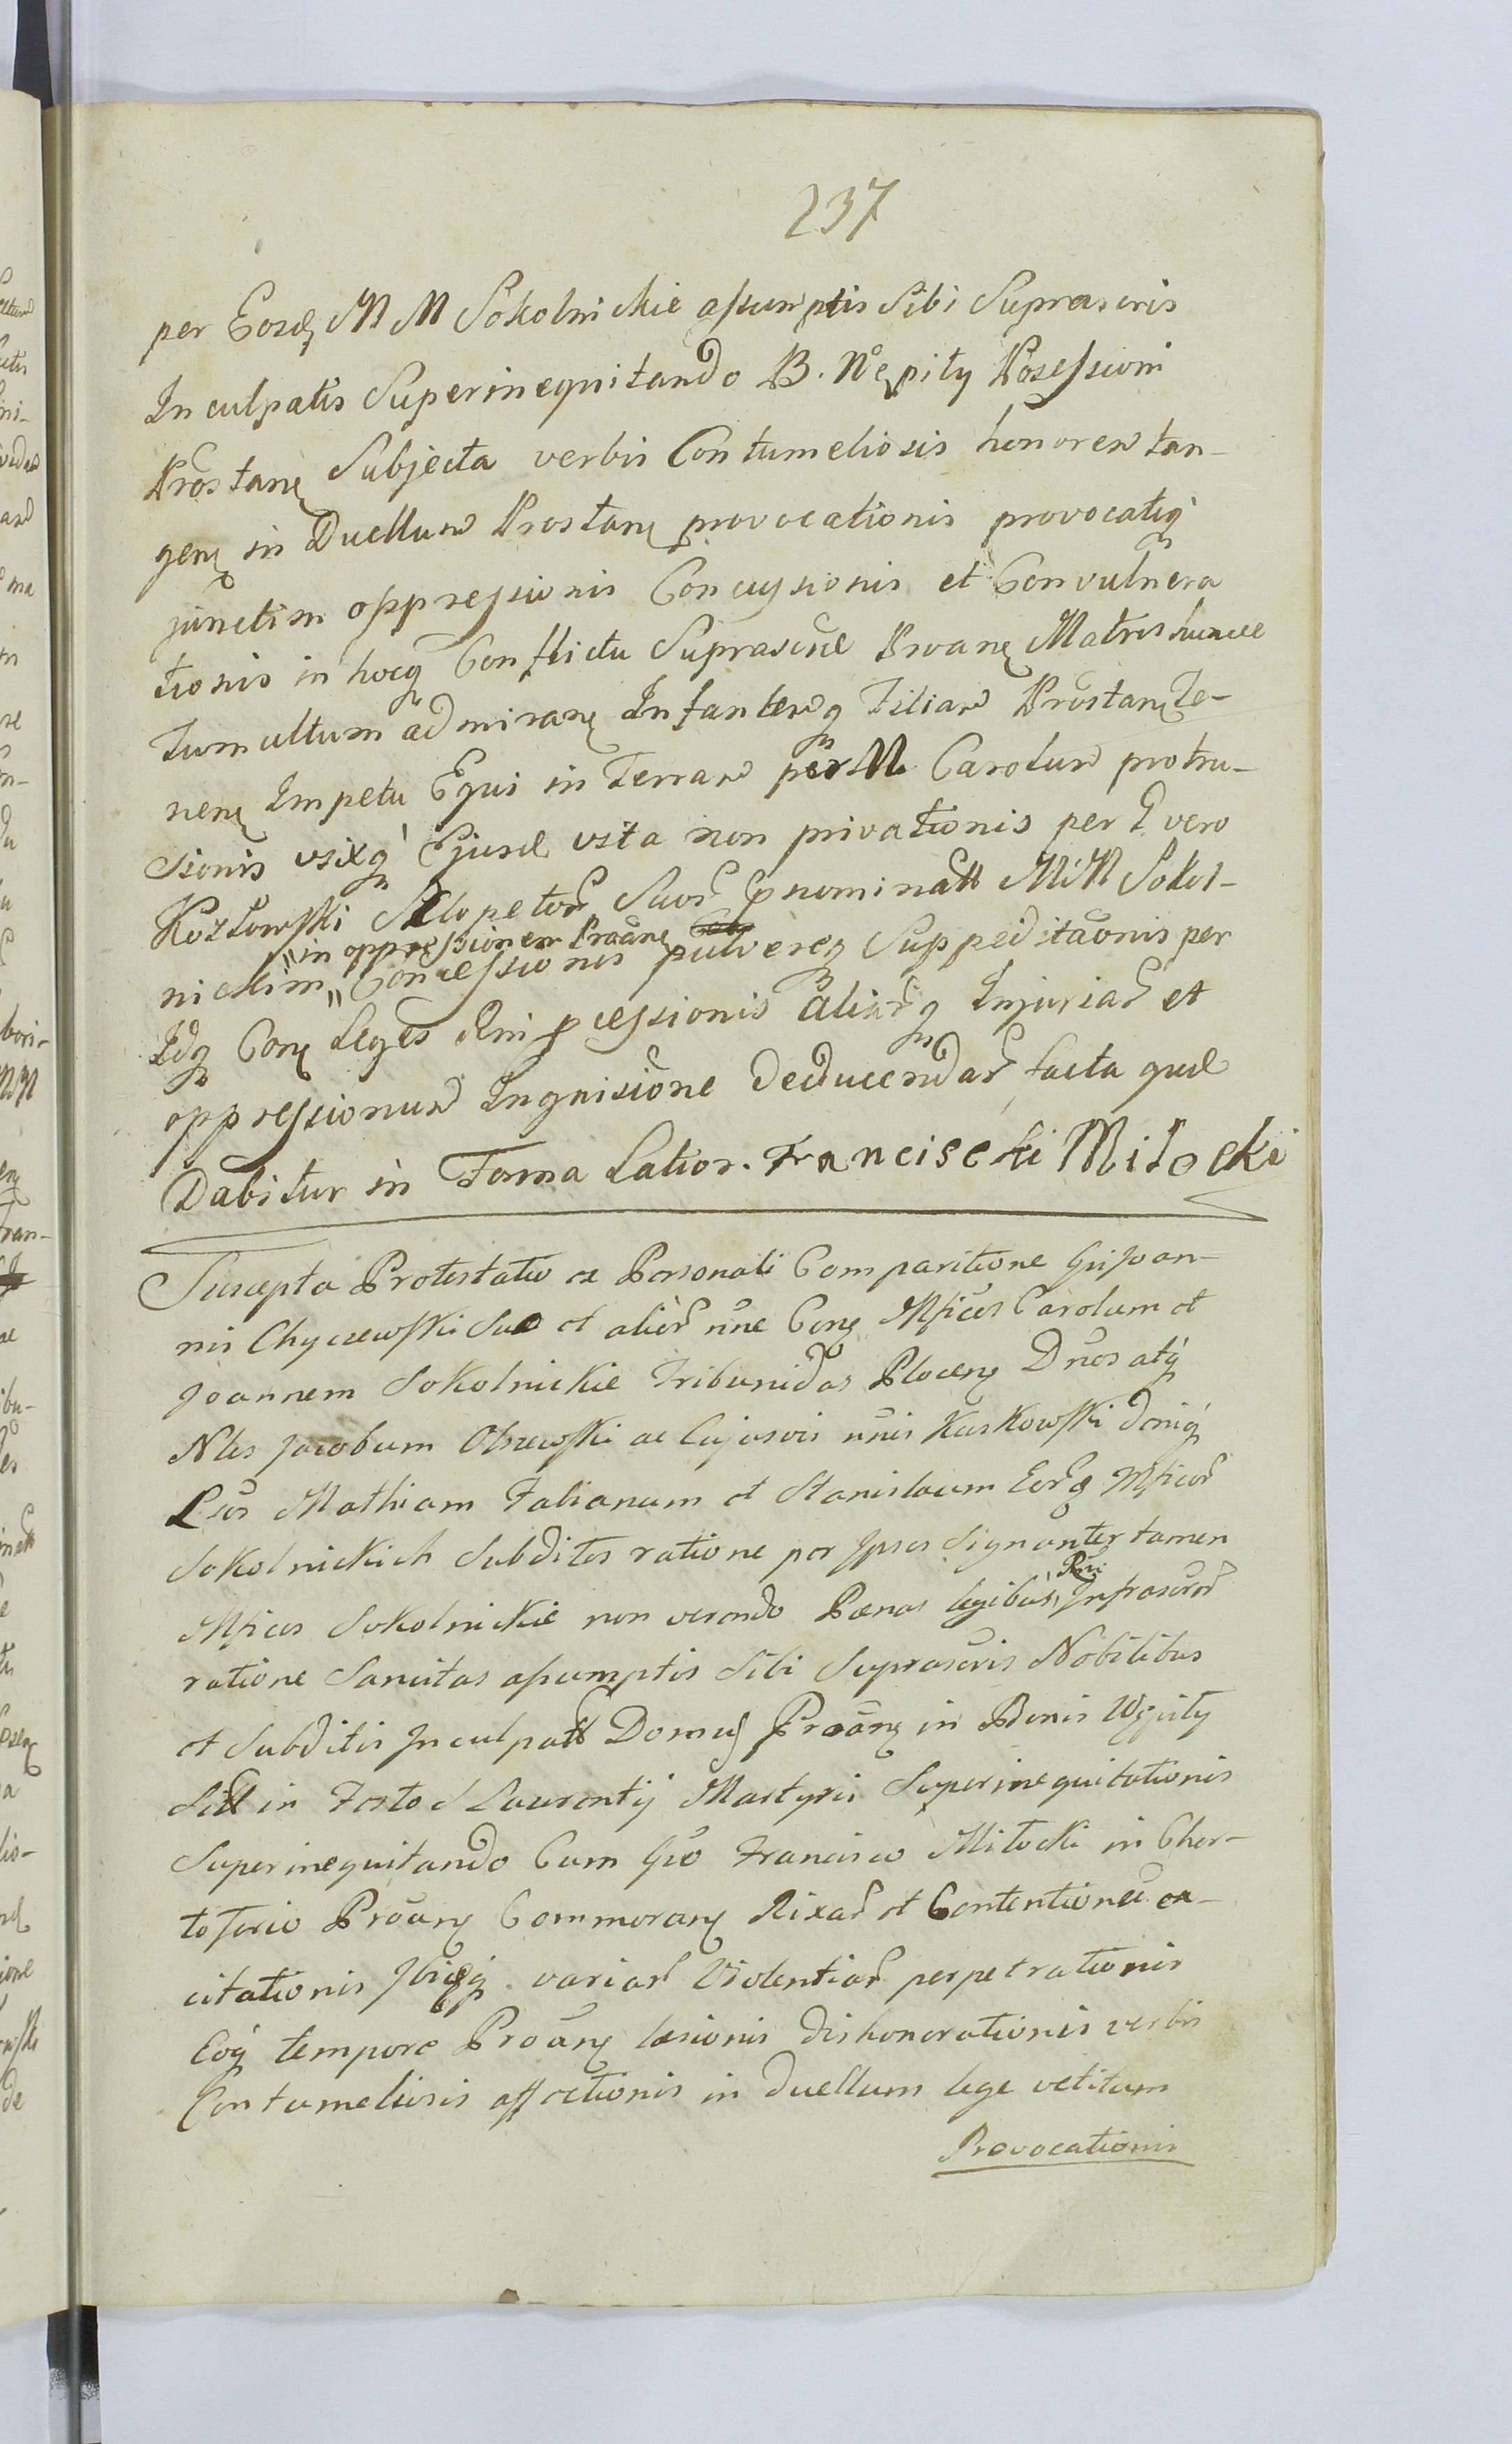 237
per Eosd MM Sokolnickie assumptis Sibi Suprascris
Inculpatis Superinequitando B. Nepity Possessioni
Prostane Subjecta verbis Contumeliosis honorem tan-
gen in Duellum Prostan provocationis provocatiq
junctim oppressionis Concussionis et Convulnera
tionis in hocq Conflictu Suprascrie Proane Matris hunce
Tumultum admirane Infantemq Filiam Prostane Te-
nene Impetu Equi in Terram per M Carolum protru-
sionis vixq Ejusd vita non privationis per G vero
Kozłowski Sclopetor Suor pnominatt MM Sokol-
"in oppressionem Proane
nickim" Concessionis pulvereq Suppeditaonis per
Idq Con Leges Rni pcessionis aliarq Injuriar et
oppressionum Inquisitione deducendar facta que
Dabitur in Forma Latior. Franciscki Miłocki
Suscepta Protestatio ex Personali Comparitione Gi Joan-
nis Chyczewski Suo et alior nne Con Mficos Carolum et
Joannem Sokolnickie Tribunidas Plocen Dnos atq
Nles Jacobum Olszewski ac Cujusvis nnis Kuskowski deniq
Los Mathiam Fabianum et Stanislaum Eorq Mficor
Sokolnickich Subditos ratione per Ipsos Signanter tamen
Rni
Mficos Sokolnickie non verendo Pænas legibus, Infrascror
ratione Sancitas assumptis Sibi Suprascris Nobilibus
et Subditis Inculpatt Domus Proane in Bonis Wępity
Sitt in Festo S Laurentij Martyris Superinequitationis
Superinequitando Cum Gso Francisco Miłocki in Ther-
totorio Proane Commorane Rixar et Contentionu ex-
citationis Ibiqq variar Violentiar perpetrationis
Eoq tempore Proane læsionis dishonorationis verbis
Contumeliosis affectionis in duellum lege vetitum
Provocationis